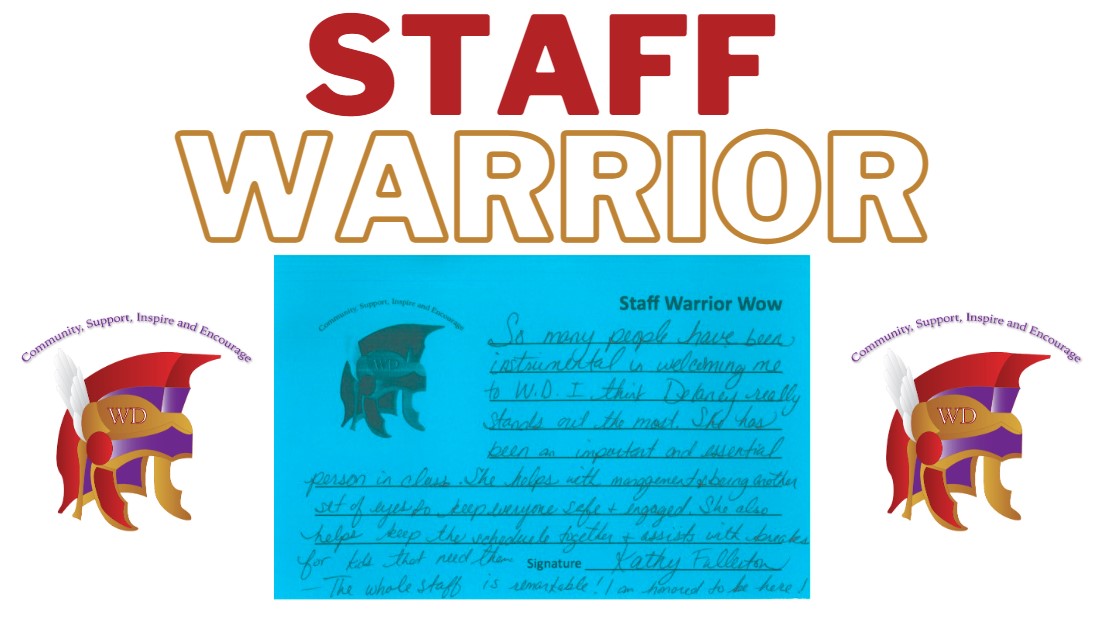 STAFF
WARRIOR
Community, Support, Inspire and Encourage
WD
Community, Support, Inspire and Encourage
WD
Staff Warrior Wow
So many people have been
instrumental in welcoming me
to W.D. I think Delaney really
stands out the most. She has
been an important and essential
person in class. She helps with management & being another
set of eyes to keep everyone safe + engaged. She also
helps keep the schedule together + assists with breaks
for kids that need them
Signature Kathy Fullerton
— The whole staff is remarkable! I am honored to be here!
Community, Support, Inspire and Encourage
WD